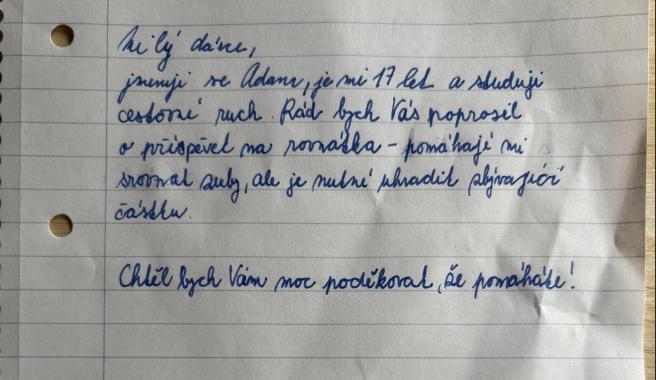 Milý dárce,
jmenuji se Adam, je mi 17 let a studuji
cestovní ruch. Rád bych Vás poprosil
o příspěvek na rovnátka - pomáhají mi
srovnat zuby, ale je nutné uhradit zbývající
částku.
Chtěl bych Vám moc poděkovat, že pomáháte!